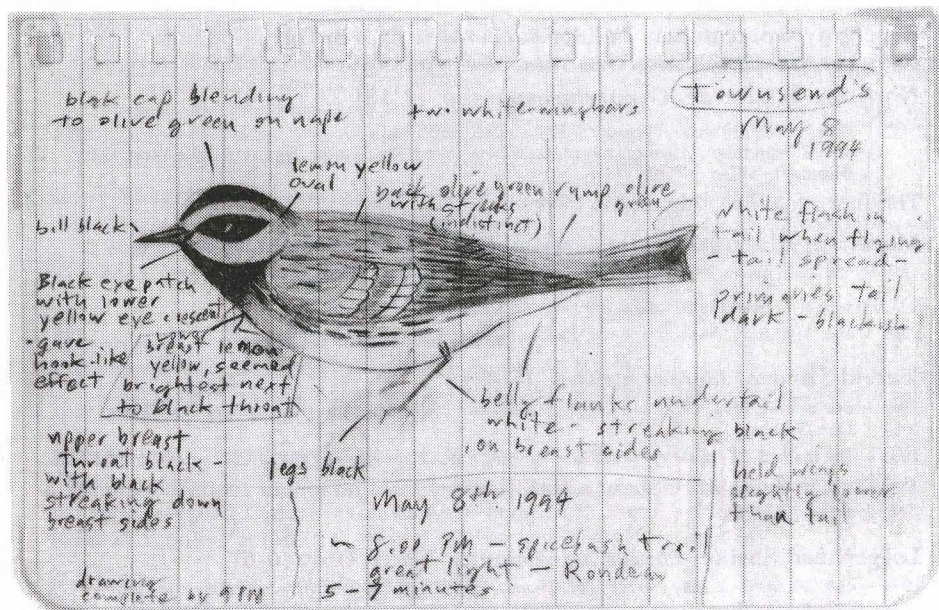 black cap blending
to olive green on nape
two white wingbars
Townsend's
May 8
1994
lemon yellow
oval
back olive green
with streaks
(indistinct)
rump olive
green
bill black
white flash in
tail when flying
- tail spread -
primaries tail
dark - blackish
Black eye patch
with lower
yellow eye crescent
- gave
hook-like
effect
breast lemon
yellow, seemed
brightest next
to black throat
belly flanks undertail
white - streaking black
on breast sides
upper breast
throat black -
with black
streaking down
breast sides
legs black
held wings
slightly lower
than tail
May 8th 1994
~ 8:00 PM - spicebush trail
great light - Rondeau
5-7 minutes
drawing
complete by 9 PM